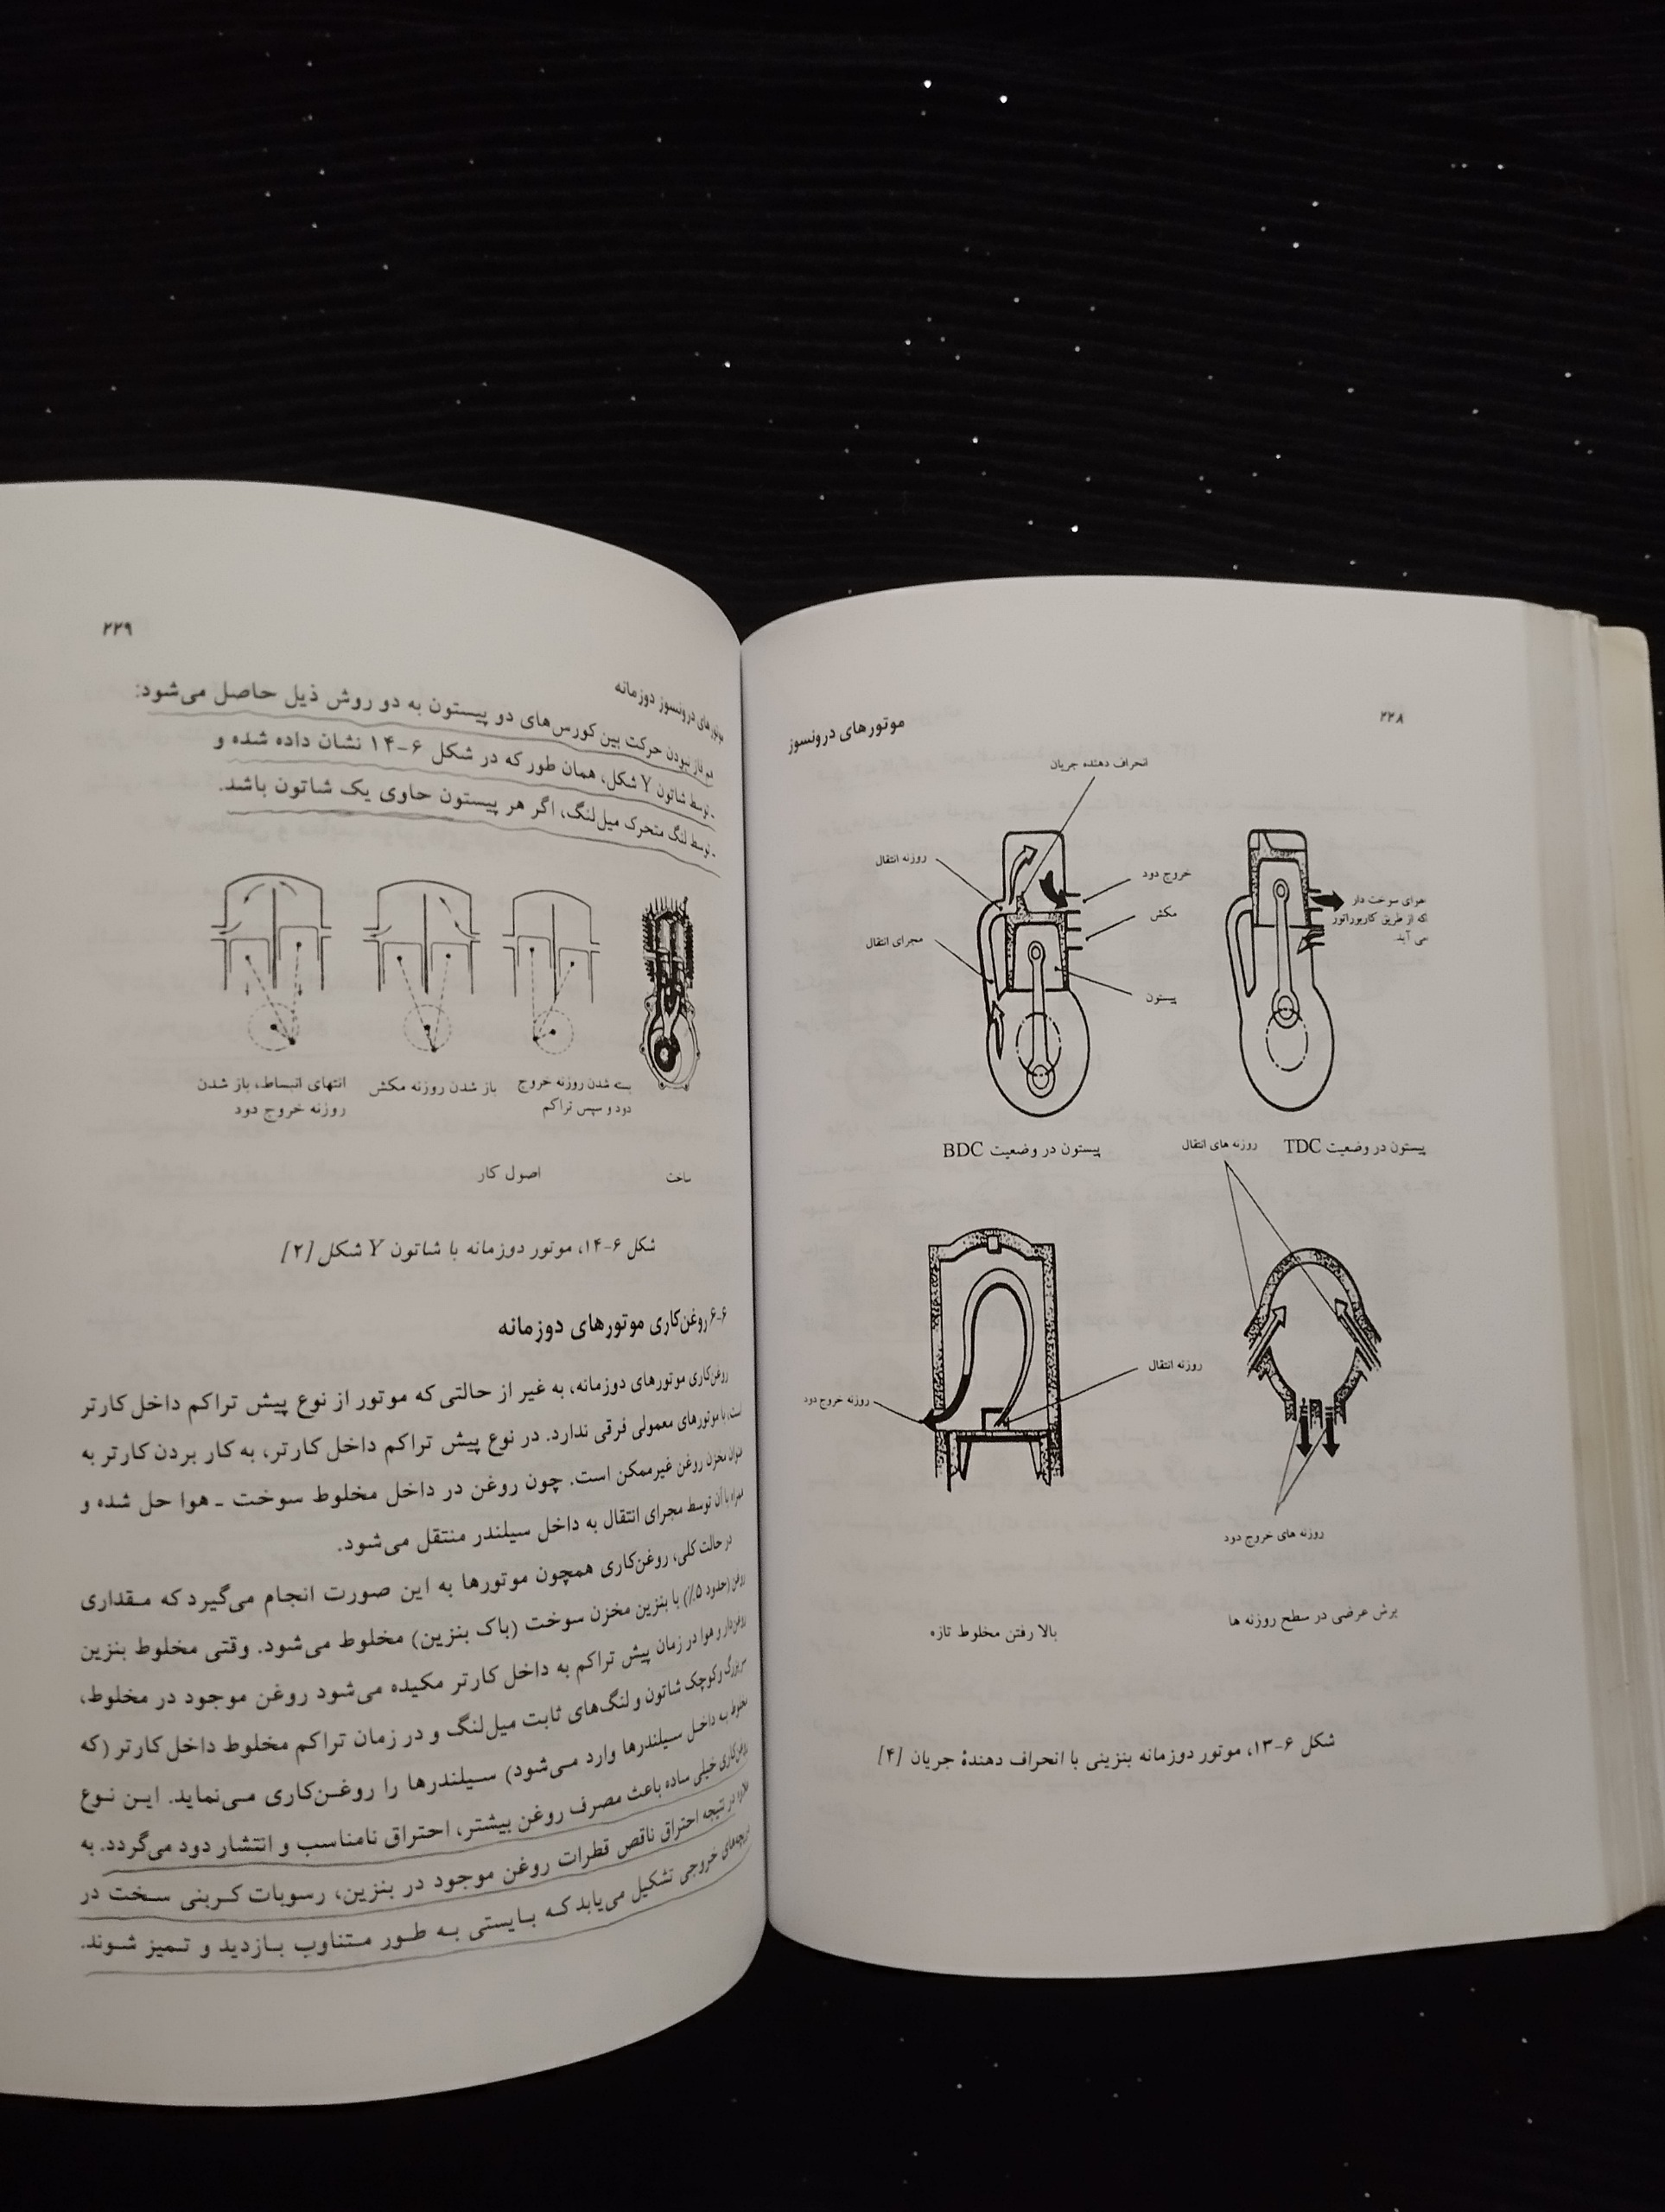 ۲۲۸
موتورهای درونسوز
انحراف دهنده جریان
روزنه انتقال
خروج دود
مکش
مجرای انتقال
پیستون
هوای سوخت دار
که از طریق کاربوراتور
می آید.
پیستون در وضعیت TDC
پیستون در وضعیت BDC
روزنه های انتقال
روزنه انتقال
روزنه خروج دود
روزنه های خروج دود
برش عرضی در سطح روزنه ها
بالا رفتن مخلوط تازه
شکل ۶-۱۳، موتور دوزمانه بنزینی با انحراف دهندهٔ جریان [۴]
۲۲۹
موتورهای درونسوز دوزمانه
هم فاز نبودن حرکت بین کورس‌های دو پیستون به دو روش ذیل حاصل می‌شود:
ـ توسط شاتون Y شکل، همان طور که در شکل ۶-۱۴ نشان داده شده و
ـ توسط لنگ متحرک میل‌لنگ، اگر هر پیستون حاوی یک شاتون باشد.
بسته شدن روزنه خروج
دود و سپس تراکم
باز شدن روزنه مکش
انتهای انبساط، باز شدن
روزنه خروج دود
ساخت
اصول کار
شکل ۶-۱۴، موتور دوزمانه با شاتون Y شکل [۲]
۶-۶ روغن‌کاری موتورهای دوزمانه
روغن‌کاری موتورهای دوزمانه، به غیر از حالتی که موتور از نوع پیش تراکم داخل کارتر
است، با موتورهای معمولی فرقی ندارد. در نوع پیش تراکم داخل کارتر، به کار بردن کارتر به
عنوان مخزن روغن غیرممکن است. چون روغن در داخل مخلوط سوخت ـ هوا حل شده و
همراه با آن توسط مجرای انتقال به داخل سیلندر منتقل می‌شود.
در حالت کلی، روغن‌کاری همچون موتورها به این صورت انجام می‌گیرد که مقداری
روغن (حدود ۵٪) با بنزین مخزن سوخت (باک بنزین) مخلوط می‌شود. وقتی مخلوط بنزین
روغن‌دار و هوا در زمان پیش تراکم به داخل کارتر مکیده می‌شود روغن موجود در مخلوط،
سر بزرگ و کوچک شاتون و لنگ‌های ثابت میل‌لنگ و در زمان تراکم مخلوط داخل کارتر (که
مخلوط به داخل سیلندرها وارد می‌شود) سیلندرها را روغن‌کاری می‌نماید. این نوع
روغن‌کاری خیلی ساده باعث مصرف روغن بیشتر، احتراق نامناسب و انتشار دود می‌گردد. به
علاوه در نتیجه احتراق ناقص قطرات روغن موجود در بنزین، رسوبات کربنی سخت در
دریچه‌های خروجی تشکیل می‌یابد که بایستی به طور متناوب بازدید و تمیز شوند.